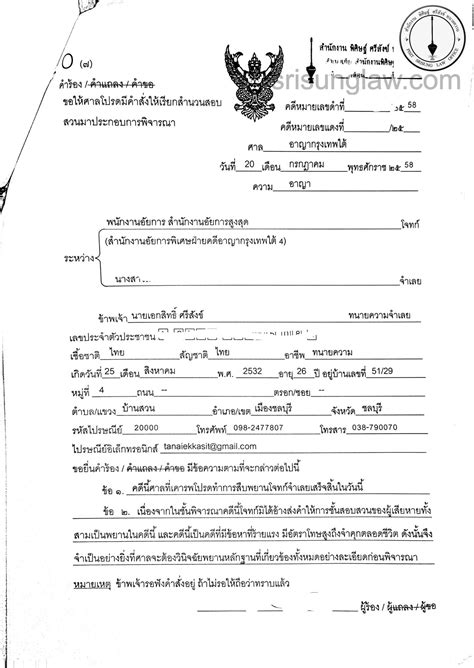 สำนักงาน พิศิษฐ์ ศรีสังข์
srisunglaw.com
๐ (๗)
คำร้อง / คำแถลง / คำขอ
ขอให้ศาลโปรดมีคำสั่งให้เรียกสำนวนสอบ
สวนมาประกอบการพิจารณา
คดีหมายเลขดำที่ ๒๕ 58
คดีหมายเลขแดงที่ /๒๕
ศาล อาญากรุงเทพใต้
วันที่ 20 เดือน กรกฎาคม พุทธศักราช ๒๕ 58
ความ อาญา
พนักงานอัยการ สำนักงานอัยการสูงสุด โจทก์
(สำนักงานอัยการพิเศษฝ่ายคดีอาญากรุงเทพใต้ 4)
ระหว่าง
นางสา จำเลย
ข้าพเจ้า นายเอกสิทธิ์ ศรีสังข์ ทนายความจำเลย
เลขประจำตัวประชาชน
เชื้อชาติ ไทย สัญชาติ ไทย อาชีพ ทนายความ
เกิดวันที่ 25 เดือน สิงหาคม พ.ศ. 2532 อายุ 26 ปี อยู่บ้านเลขที่ 51/29
หมู่ที่ 4 ถนน -- ตรอก/ซอย --
ตำบล/แขวง บ้านสวน อำเภอ/เขต เมืองชลบุรี จังหวัด ชลบุรี
รหัสไปรษณีย์ 20000 โทรศัพท์ 098-2477807 โทรสาร 038-790070
ไปรษณีย์อิเล็กทรอนิกส์ tanaiekkasit@gmail.com
ขอยื่นคำร้อง / คำแถลง / คำขอ มีข้อความตามที่จะกล่าวต่อไปนี้
ข้อ ๑. คดีนี้ศาลที่เคารพโปรดทำการสืบพยานโจทก์จำเลยเสร็จสิ้นในวันนี้
ข้อ ๒. เนื่องจากในชั้นพิจารณาคดีนี้โจทก์มิได้อ้างส่งคำให้การชั้นสอบสวนของผู้เสียหายทั้ง
สามเป็นพยานในคดีนี้ และคดีนี้เป็นคดีที่มีข้อหาที่ร้ายแรง มีอัตราโทษสูงถึงจำคุกตลอดชีวิต ดังนั้นจึง
จำเป็นอย่างยิ่งที่ศาลจะต้องวินิจฉัยพยานหลักฐานที่เกี่ยวข้องทั้งหมดอย่างละเอียดก่อนพิจารณา
หมายเหตุ ข้าพเจ้ารอฟังคำสั่งอยู่ ถ้าไม่รอให้ถือว่าทราบแล้ว
ผู้ร้อง / ผู้แถลง / ผู้ขอ